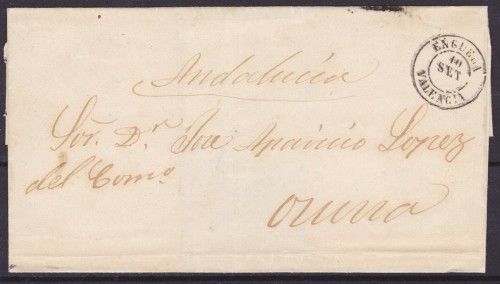 ENGUERA
10
SET
VALENCIA
Andalucia
Sor. Dn. Jose Aparicio Lopez
del Como.
Osuna